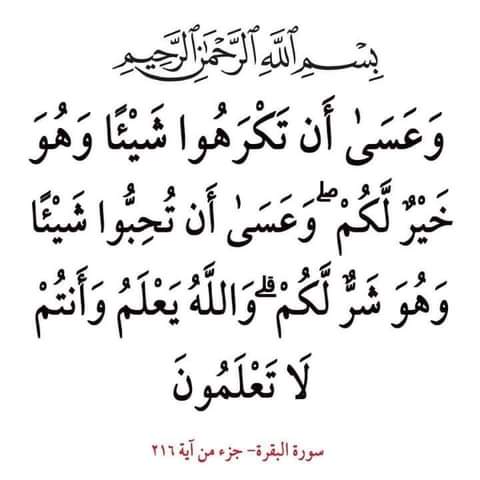 بِسْمِ اللَّهِ الرَّحْمَٰنِ الرَّحِيمِ
وَعَسَىٰ أَن تَكْرَهُوا شَيْئًا وَهُوَ
خَيْرٌ لَّكُمْ ۖ وَعَسَىٰ أَن تُحِبُّوا شَيْئًا
وَهُوَ شَرٌّ لَّكُمْ ۗ وَاللَّهُ يَعْلَمُ وَأَنتُمْ
لَا تَعْلَمُونَ
سورة البقرة- جزء من آية ٢١٦